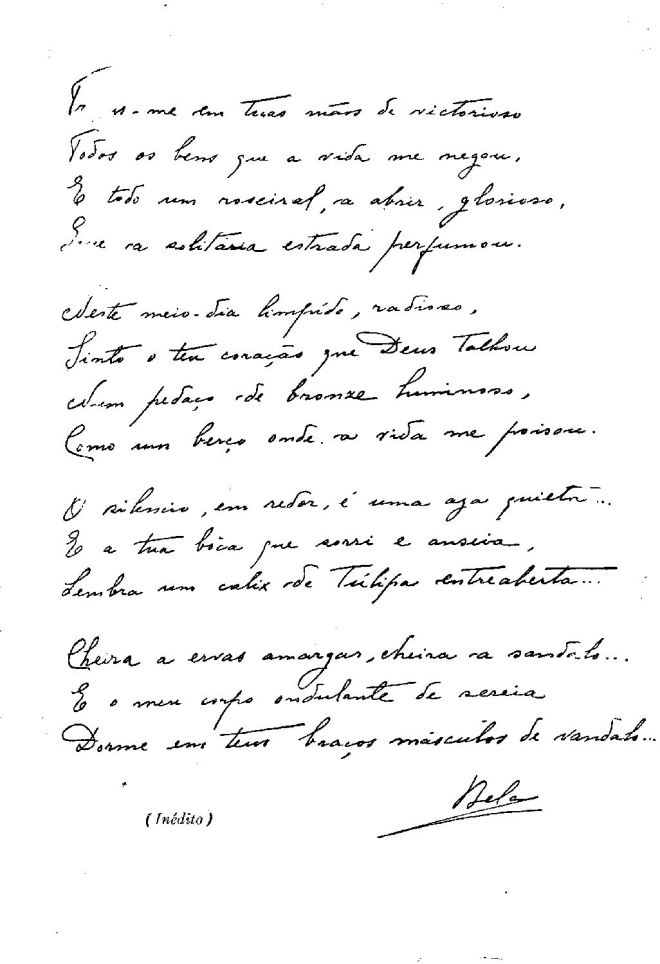 em tuas mãos de victorioso
Todos os bens que a vida me negou,
E todo um roseiral, a abrir, glorioso,
Que a solitária estrada perfumou.
Neste meio-dia limpído, radioso,
Sinto o teu coração que Deus talhou
Num pedaço de bronze luminoso,
Como um berço onde a vida me poisou.
O silencio, em redor, é uma aza quieta...
E a tua bôca que sorri e anseia,
Lembra um calix de Túlipa entreaberta...
Cheira a ervas amargas, cheira a sandalo...
E o meu corpo ondulante de sereia
Dorme em teus braços másculos de vandalo...
Bela
(Inédito)